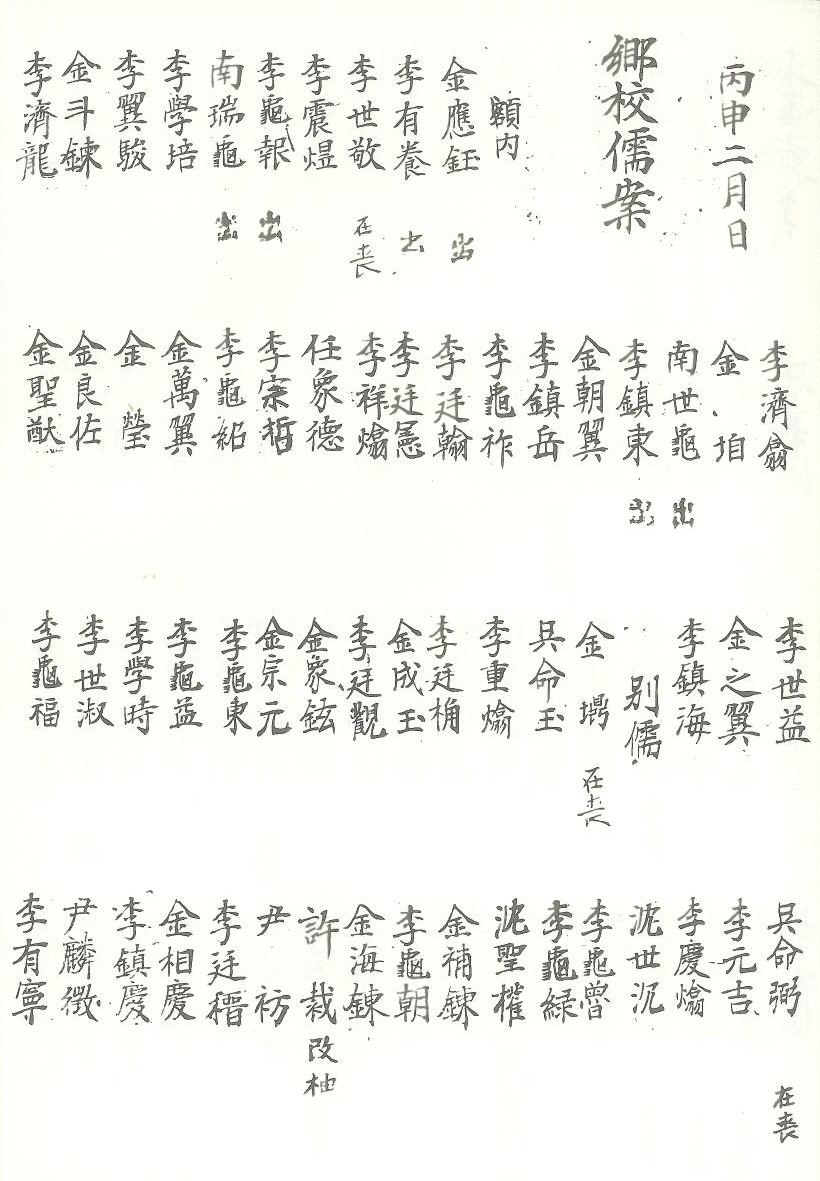 丙申二月日
鄕校儒案
額内
金應鈺 出
李有養 出
李世敬 在喪
李震煜
李龜報 出
南瑞龜 出
李學培
李翼駿
金斗鍊
李濟龍
李濟翕
金 垍
南世龜 出
李鎮東 出
金朝翼
李鎮岳
李龜祚
李廷翰
李廷
李祥爚
任象德
李宗哲
李龜紹
金萬翼
金 瑩
金良佐
金聖猷
李世益
金之翼
李鎮海
別儒
金 在喪
吳命玉
李重爚
李廷桷
金成玉
李廷觀
金象鉉
金宗元
李龜東
李龜益
李學時
李世淑
李龜福
吳命弼 在喪
李元吉
李慶爚
沈世沉
李龜魯
李龜緑
沈聖權
金補鍊
李龜朝
金海鍊
許 栽 改柚
尹 祊
李廷
金相慶
李鎮慶
尹麟徵
李有寧